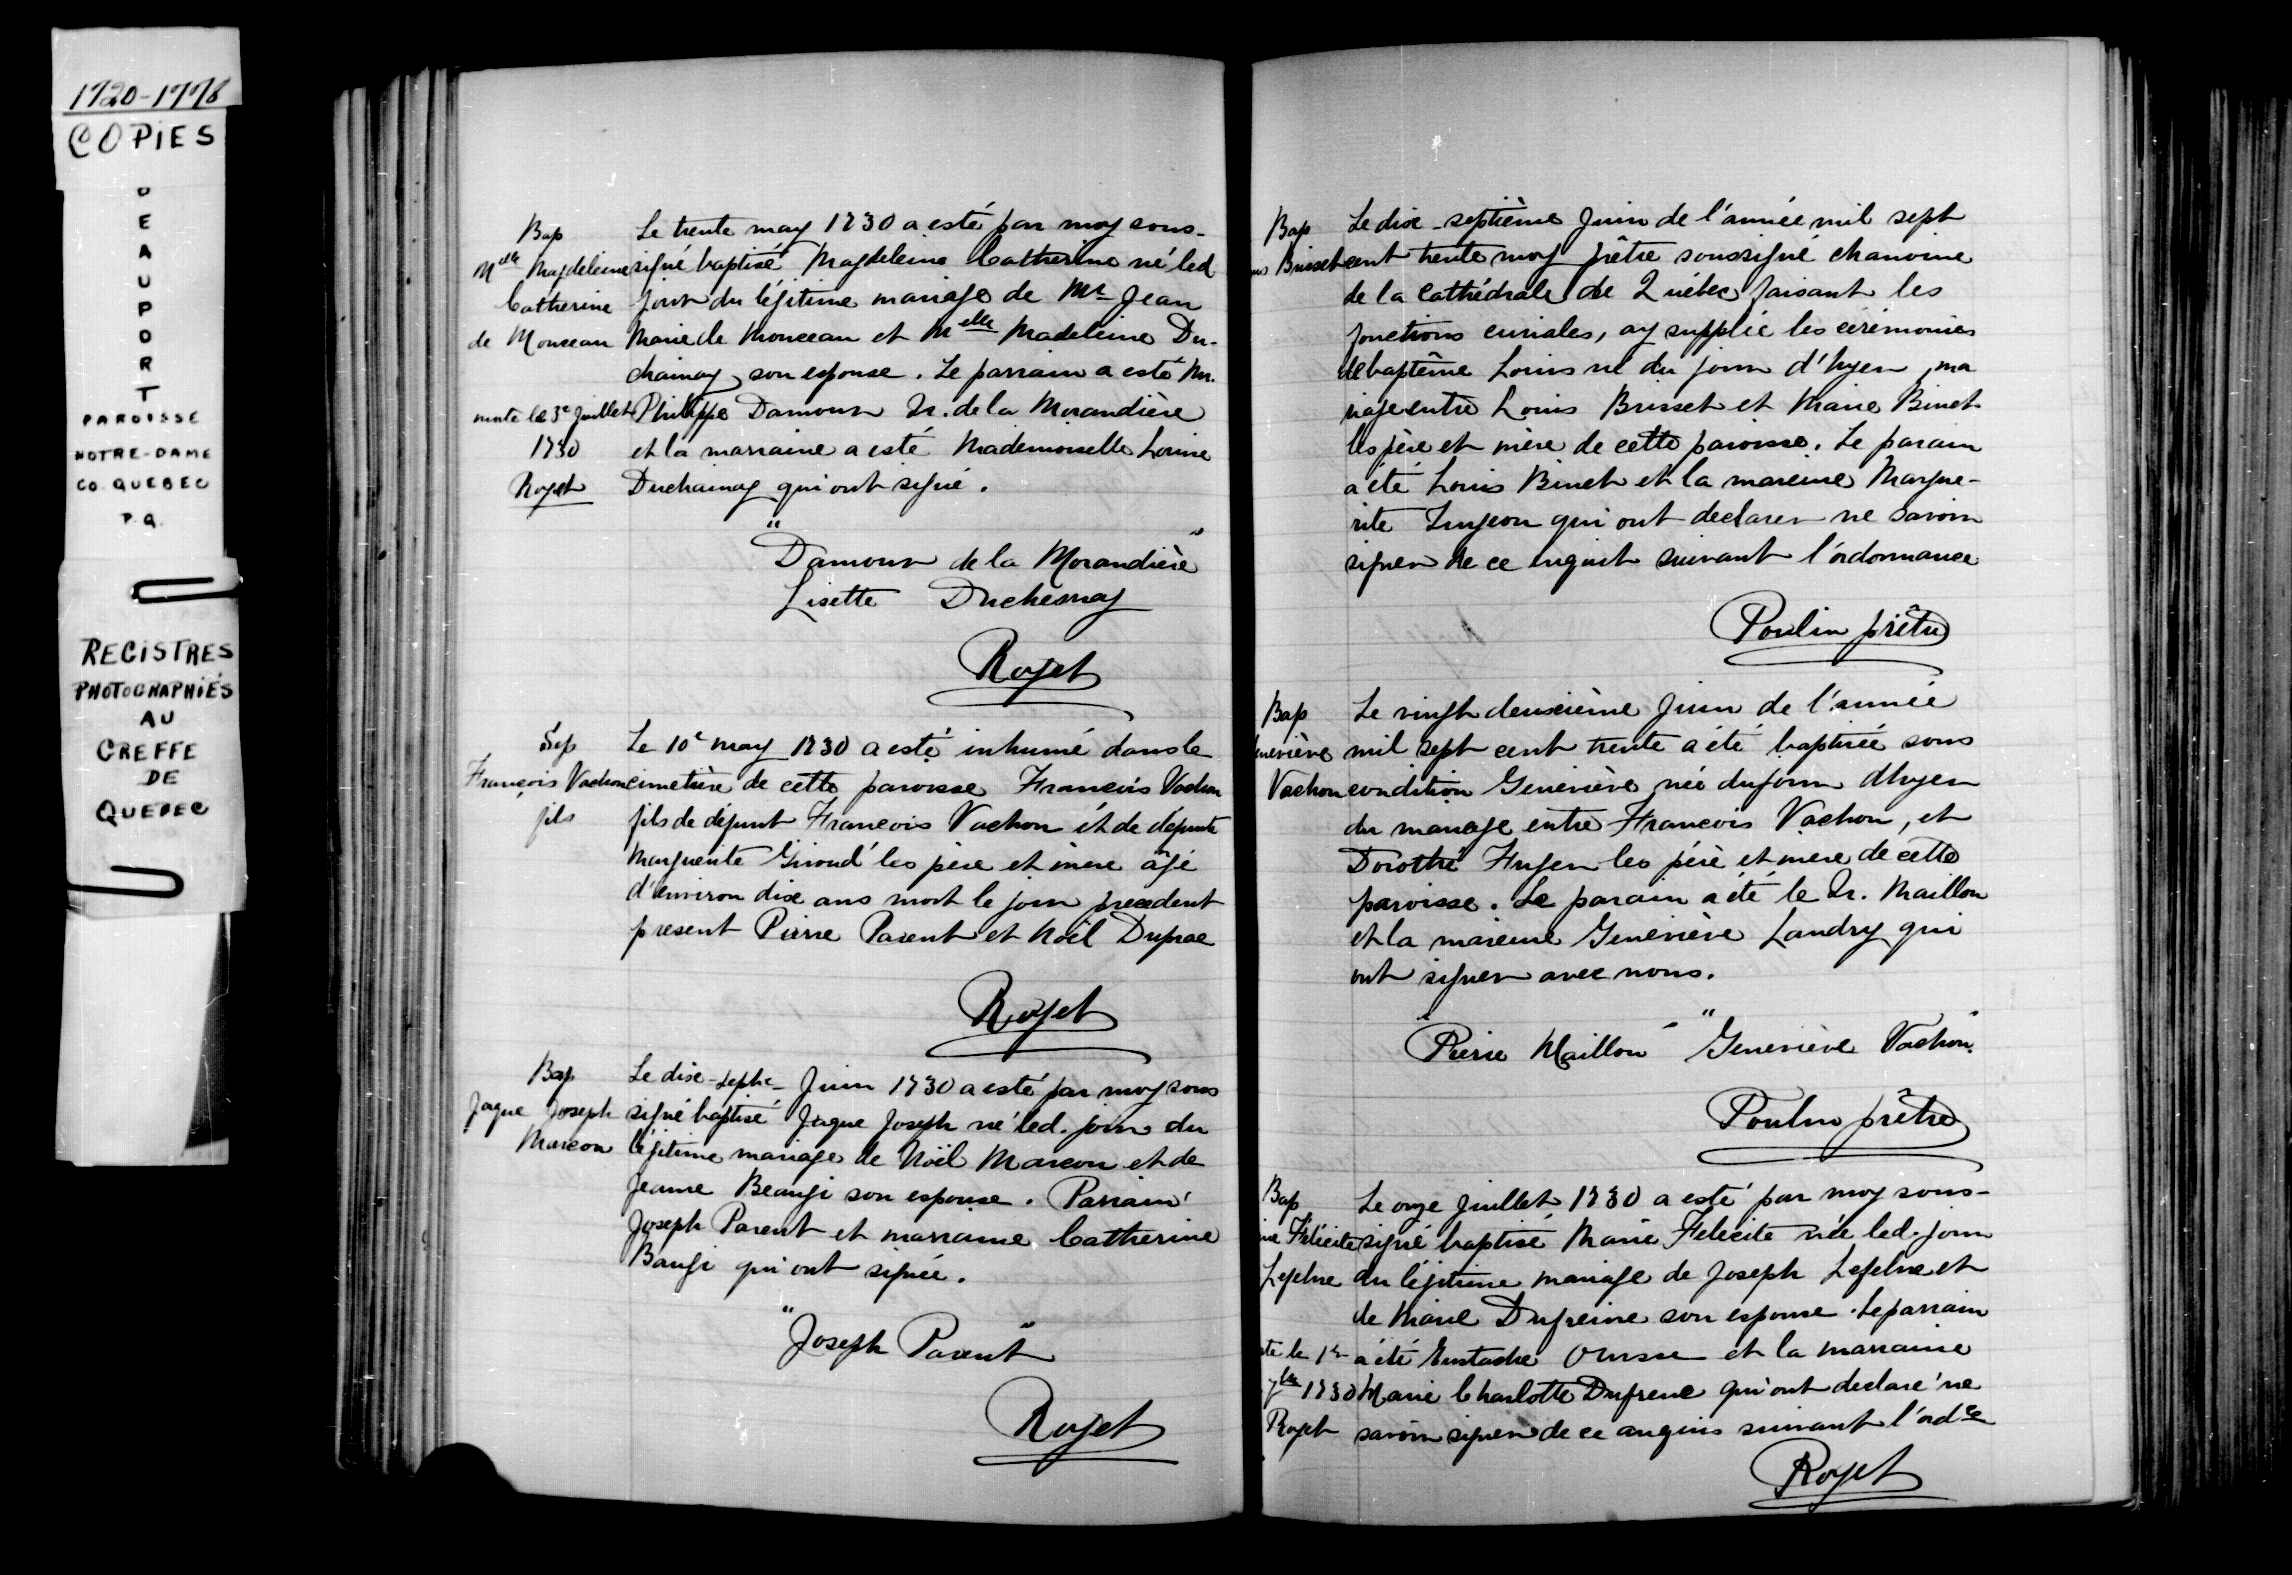 1720-1778
COPIES
BEAUPORT
PAROISSE
NOTRE-DAME
CO. QUEBEC
P.Q.
REGISTRES
PHOTOGRAPHIÉS
AU
GREFFE
DE
QUEBEC
Bap
Melle Magdeleine
Catherine
de Monceau
morte le 3e Juillet
1730
Royet
Le trente may 1730 a esté par moy sous-
signé baptisé Magdeleine Catherine né led
jour du légitime mariage de Mr Jean
Marie de Monceau et Melle Madeleine Du-
chainay son espouse. Le parrain a esté Mr.
Philippe Damour Sr. de la Morandière
et la marraine a esté Mademoiselle Louise
Duchainay qui ont signé.
"Damour de la Morandière"
Lisette Duchesnay
Royet
Sep
François Vachon
fils
Le 10e may 1730 a esté inhumé dans le
cimetière de cette paroisse François Vachon
fils de défunt François Vachon et de défunte
Marguerite Giroud les père et mère âgé
d'environ dix ans mort le jour precedent
present Pierre Parent et Noël Duprac
Royet
Bap
Jaque Joseph
Marcou
Le dix-septe Juin 1730 a esté par moy sous
signé baptisé Jaque Joseph né led. jour du
légitime mariage de Noël Marcou et de
Jeanne Beaugi son espouse. Parrain
Joseph Parent et marraine Catherine
Baugi qui ont signée.
"Joseph Parent"
Royet
Bap
Brisset
Le dix-septième Juin de l'année mil sept
cent trente moy prêtre soussigné chanoine
de la cathédrale de Québec faisant les
fonctions curiales, ay supplié les cérémonies
de baptême Louis né du jour d'hyer, ma
riage entre Louis Brisset et Marie Binet
les père et mère de cette paroisse. Le parain
a été Louis Binet et la mareine Margue-
rite Lugeon qui ont declarer ne savoir
signer de ce enquit suivant l'ordonnance
Poulin prêtre
Bap
eneviève
Vachon
Le vingt deuxième Juin de l'année
mil sept cent trente a été baptisée sous
condition Geneviève née du jour dhyer
du mariage entre François Vachon, et
Dorothé les père et mere de cette
paroisse. Le parain a été le Sr. Maillou
et la mareine Geneviève Landry qui
ont signer avec nous.
"Pierre Maillou" "Geneviève Vachon"
Poulin prêtre
Bap
ie Félicité
Lefebve
te le 1er
7bre 1730
Royet
Le onze Juillet 1730 a esté par moy sous-
signé baptisé Marie Félécité née led. jour
du légitime mariage de Joseph Lefebve et
de Marie Dufreine son espouse. Le parrain
a été Eustache et la marraine
Marie Charlotte Dufrene qui ont declaré ne
savoir signer de ce anquis suivant l'ordce
Royet